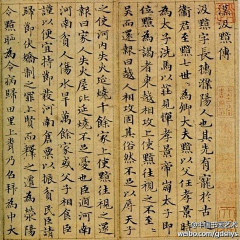 漢汲黯傳
汲黯字長孺濮陽人也其先有寵於古
衛君至黯七世為卿大夫黯以父任孝景
為太子洗馬以莊見憚孝景帝崩太子即
位黯為謁者東越相攻上使黯往視之不至
吳而還報曰越人相攻固其俗然不足以辱天子
之使河內失火延燒千餘家上使黯往視之還
報曰家人失火屋比延燒不足憂也臣過河南
河南貧人傷水旱萬餘家或父子相食臣
謹以便宜持節發河南倉粟以振貧民臣請
歸節伏矯制之罪上賢而釋之遷為滎陽
令黯恥為令病歸田里上聞乃召拜為中大